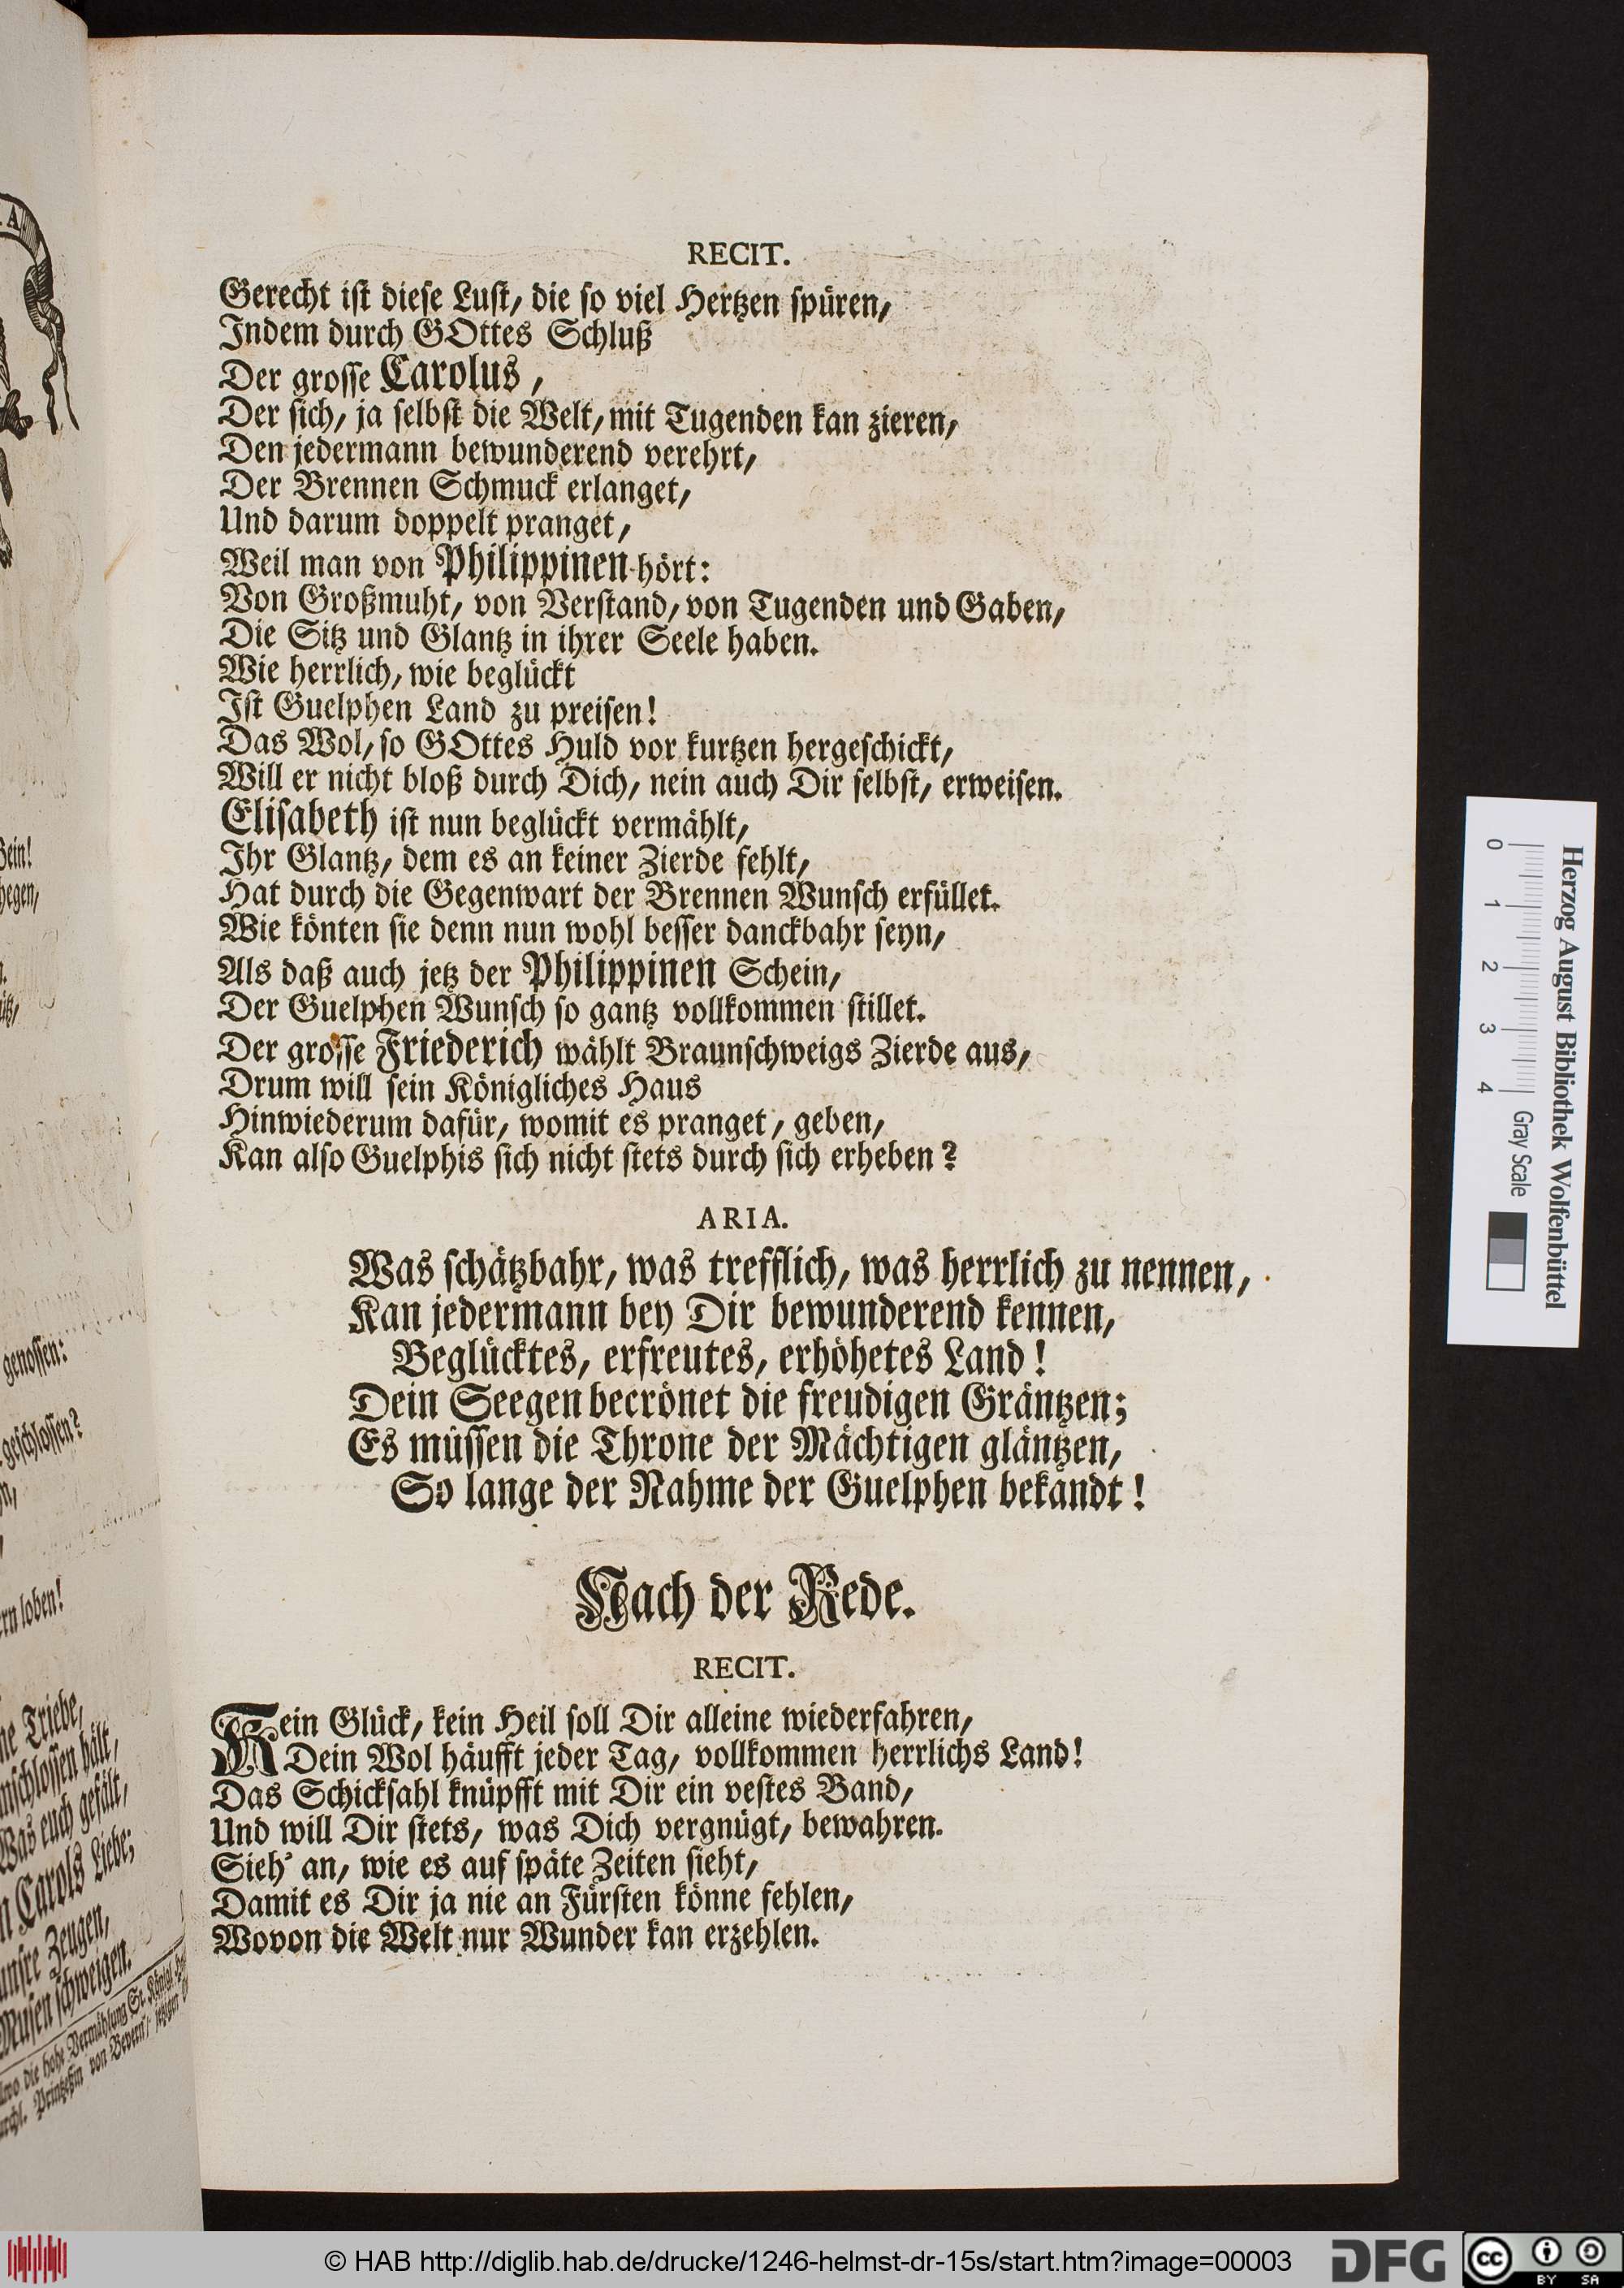 RECIT.
Gerecht ist diese Lust, die so viel Hertzen spüren,
Indem durch GOttes Schluß
Der grosse Carolus,
Der sich, ja selbst die Welt, mit Tugenden kan zieren,
Den jedermann bewunderend verehrt,
Der Brennen Schmuck erlanget,
Und darum doppelt pranget,
Weil man von Philippinen hört:
Von Großmuht, von Verstand, von Tugenden und Gaben,
Die Sitz und Glantz in ihrer Seele haben.
Wie herrlich, wie beglückt
Ist Guelphen Land zu preisen!
Das Wol, so GOttes Huld vor kurtzen hergeschickt,
Will er nicht bloß durch Dich, nein auch Dir selbst, erweisen.
Elisabeth ist nun beglückt vermählt,
Ihr Glantz, dem es an keiner Zierde fehlt,
Hat durch die Gegenwart der Brennen Wunsch erfüllet.
Wie könten sie denn nun wohl besser danckbahr seyn,
Als daß auch jetz der Philippinen Schein,
Der Guelphen Wunsch so gantz vollkommen stillet.
Der grosse Friederich wählt Braunschweigs Zierde aus,
Drum will sein Königliches Haus
Hinwiederum dafür, womit es pranget, geben,
Kan also Guelphis sich nicht stets durch sich erheben?
ARIA.
Was schätzbahr, was trefflich, was herrlich zu nennen,
Kan jedermann bey Dir bewunderend kennen,
Beglücktes, erfreutes, erhöhetes Land!
Dein Seegen becrönet die freudigen Gräntzen;
Es müssen die Throne der Mächtigen gläntzen,
So lange der Nahme der Guelphen bekandt!
Nach der Rede.
RECIT.
Kein Glück, kein Heil soll Dir alleine wiederfahren,
Dein Wol häufft jeder Tag, vollkommen herrlichs Land!
Das Schicksahl knüpfft mit Dir ein vestes Band,
Und will Dir stets, was Dich vergnügt, bewahren.
Sieh' an, wie es auf späte Zeiten sieht,
Damit es Dir ja nie an Fürsten könne fehlen,
Wovon die Welt nur Wunder kan erzehlen.
genossen:
geschlossen?
loben!
Triebe,
hält,
Was euch gefält,
Carols Liebe;
unsre Zeugen,
Musen schweigen.
die hohe Vermählung Sr. Königl.
Printzeßin von Bevern
Herzog August Bibliothek Wolfenbüttel
0 1 2 3 4 Gray Scale
© HAB http://diglib.hab.de/drucke/1246-helmst-dr-15s/start.htm?image=00003
DFG
cc BY SA